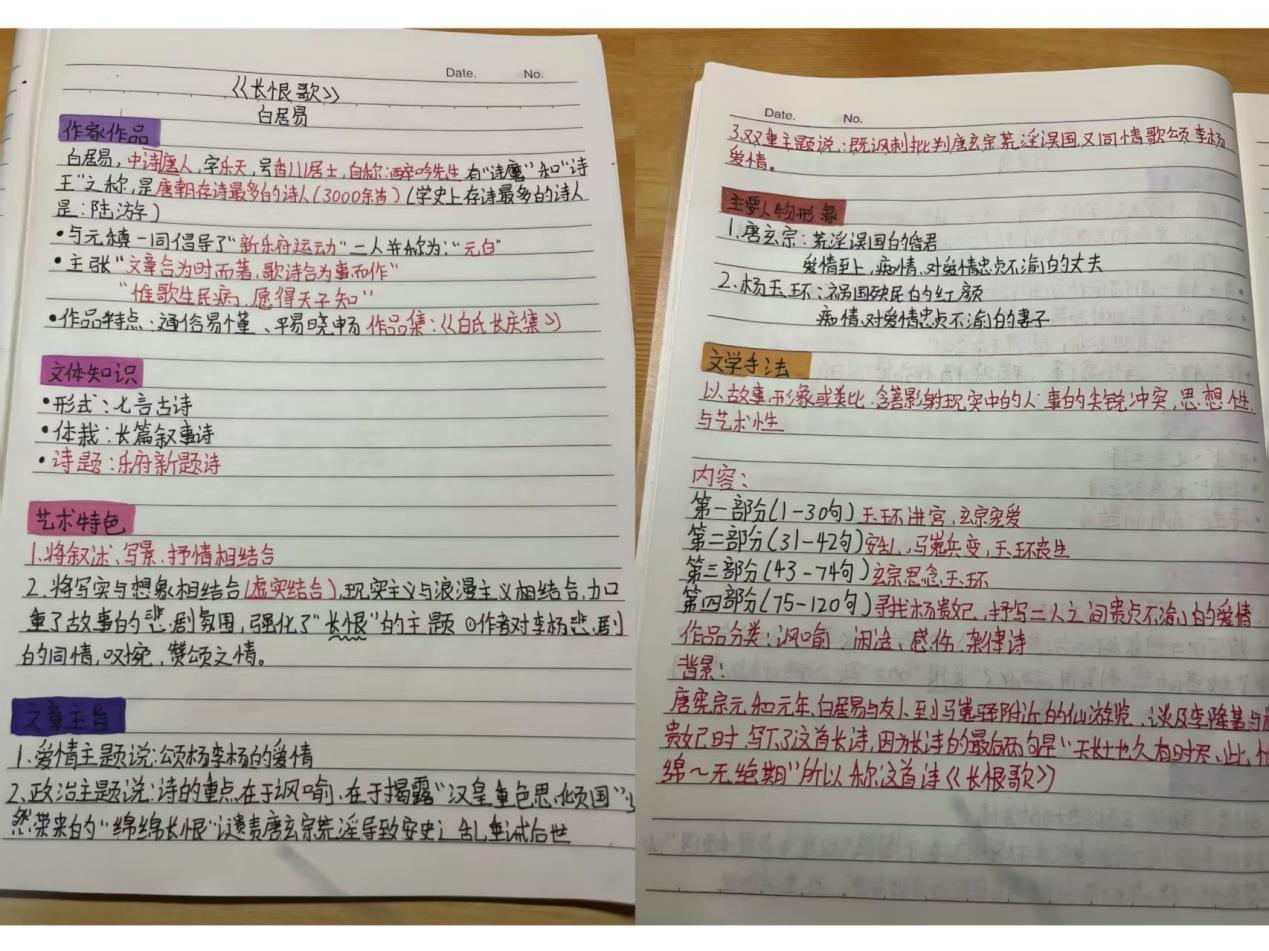 Date. No.
《长恨歌》
白居易
作家作品
白居易,中唐诗人,字乐天,号香山居士,自称:醉吟先生 有"诗魔"和"诗
王"之称,是唐朝存诗最多的诗人(3000余首)(学史上存诗最多的诗人
是:陆游)
•与元稹一同倡导了"新乐府运动"二人并称为:"元白"
•主张"文章合为时而著,歌诗合为事而作"
"惟歌生民病,愿得天子知"
•作品特点:通俗易懂、平易晓畅 作品集:《白氏长庆集》
文体知识
•形式:七言古诗
•体裁:长篇叙事诗
•诗题:乐府新题诗
艺术特色
1.将叙述、写景、抒情相结合
2.将写实与想象相结合(虚实结合),现实主义与浪漫主义相结合,加
重了故事的悲剧氛围,强化了"长恨"的主题 ①作者对李杨悲剧
的同情,叹惋,赞颂之情。
文章主旨
1、爱情主题说:颂杨李杨的爱情
2、政治主题说:诗的重点在于讽喻,在于揭露"汉皇重色思倾国"必
然带来的"绵绵长恨"谴责唐玄宗荒淫导致安史之乱垂诫后世
Date. No.
3.双重主题说:既讽刺批判唐玄宗荒淫误国又同情歌颂李杨
爱情。
主要人物形象
1.唐玄宗:荒淫误国的昏君
爱情至上,痴情、对爱情忠贞不渝的丈夫
2、杨玉环:祸国殃民的红颜
痴情、对爱情忠贞不渝的妻子
文学手法
以故事,形象或类比,含蓄影射现实中的人事的尖锐冲突,思想性
与艺术性
内容:
第一部分(1-30句)玉环进宫,玄宗宠爱
第二部分(31-42句)安乱,马嵬兵变,玉环丧生
第三部分(43-74句)玄宗思念玉环
第四部分(75-120句)寻找杨贵妃,抒写二人之间贵贞不渝的爱情
作品分类:讽喻、闲适、感伤、杂律诗
背景:
唐宪宗元和元年,白居易与友人到马嵬驿附近的仙游览,谈及李隆基与
贵妃时,写下了这首长诗,因为长诗的最后两句是"天长地久有时尽、此
绵~无绝期"所以称这首诗《长恨歌》